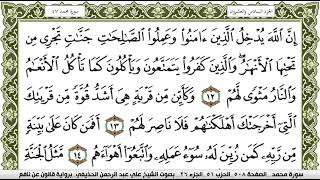 الجزء السادس والعشرون سورة محمد ٤٧
إِنَّ اَللَّهَ يُدْخِلُ اُلَّذِينَ ءَامَنُواْ وَعَمِلُواْ اُلصَّٰلِحَٰتِ جَنَّٰتٍ تَجْرِى مِن
تَحْتِهَا اَلْأَنْهَٰرُ وَالَّذِينَ كَفَرُواْ يَتَمَتَّعُونَ وَيَأْكُلُونَ كَمَا تَأْكُلُ اُلْأَنْعَٰمُ
وَالنَّارُ مَثْوًى لَّهُمْ ١٢ وَكَأَيِّن مِّن قَرْيَةٍ هِىَ أَشَدُّ قُوَّةً مِّن قَرْيَتِكَ
اَلَّتِى أَخْرَجَتْكَ أَهْلَكْنَٰهُمْ فَلَا نَاصِرَ لَهُمْ ١٣ أَفَمَن كَانَ عَلَىٰ بَيِّنَةٍ
مِّن رَّبِّهِۦ كَمَن زُيِّنَ لَهُۥ سُوٓءُ عَمَلِهِۦ وَاتَّبَعُوٓاْ أَهْوَآءَهُم ١٤ مَّثَلُ اُلْجَنَّةِ
سورة محمد _ الصفحة ٥٠٨ _ الحزب ٥١ _ الجزء ٢٦ _ بصوت الشيخ علي عبد الرحمن الحذيفي _ برواية قالون عن نافع